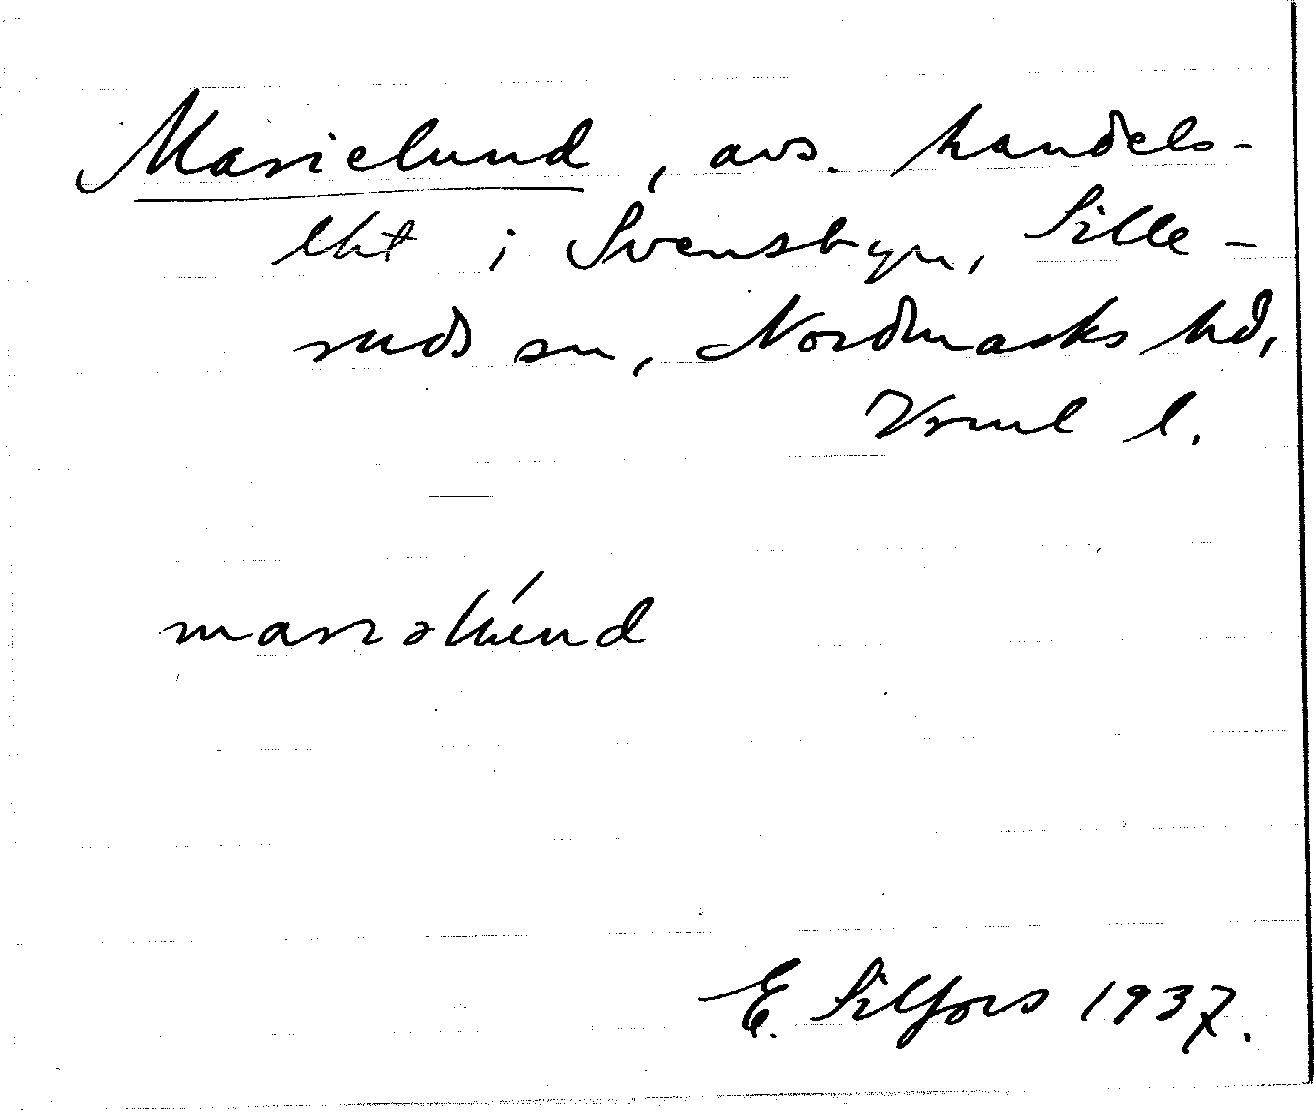 Marielund, avs. handels-
lht i Svensbyn, Sille-
ruds sn, Nordmarks hd,
Vrml l.
marıəlu´nd
E. Silfors 1937.